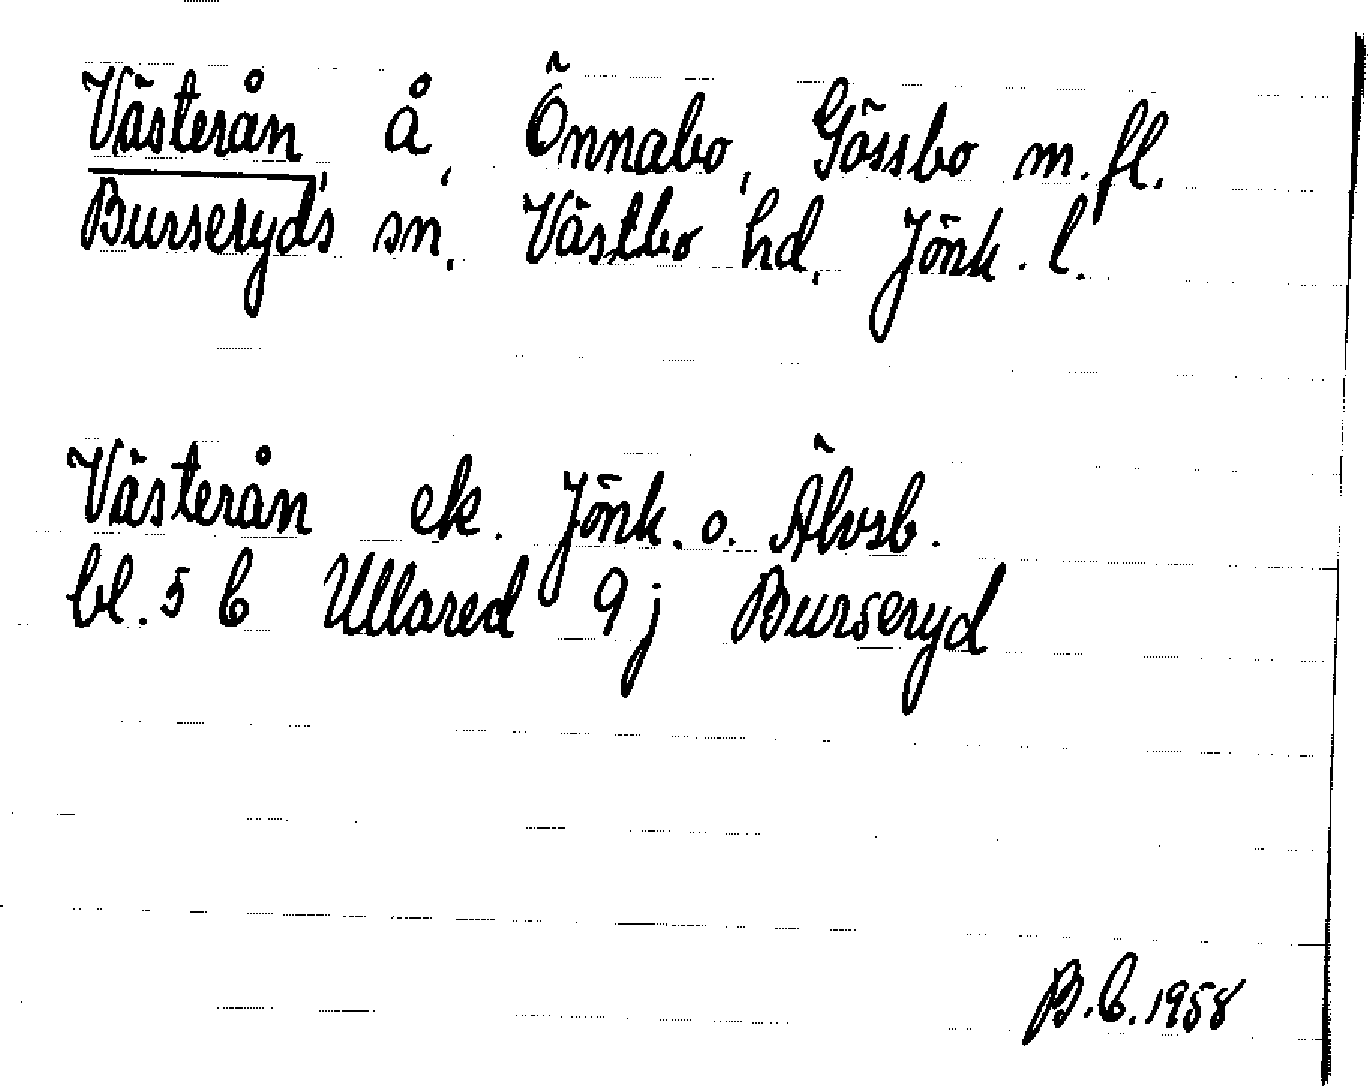 Västerån, å, Önnabo, Gässbo m.fl.
Burseryds sn. Västbo hd. Jönk. l.
Västerån ek. Jönk. o. Älvsb.
bl. 5 C Ullared 9 j Burseryd
B.C. 1958